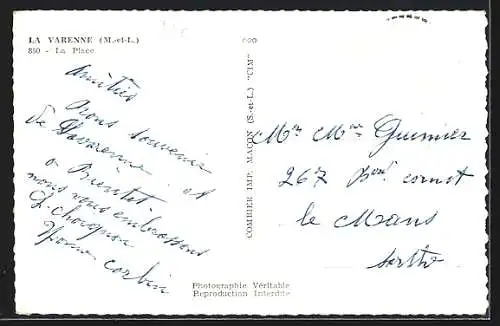 LA VARENNE (M.-et-L.)
850 - La Place
Amitiés
Bons souvenir
de Lavarenne et
a Bientot
nous vous embrassons
corbin
COMBIER IMP. MACON (S.-et-L.) "CIM"
Mr Mme Guimier
267
le Mans
sarthe
Photographie Véritable
Reproduction Interdite